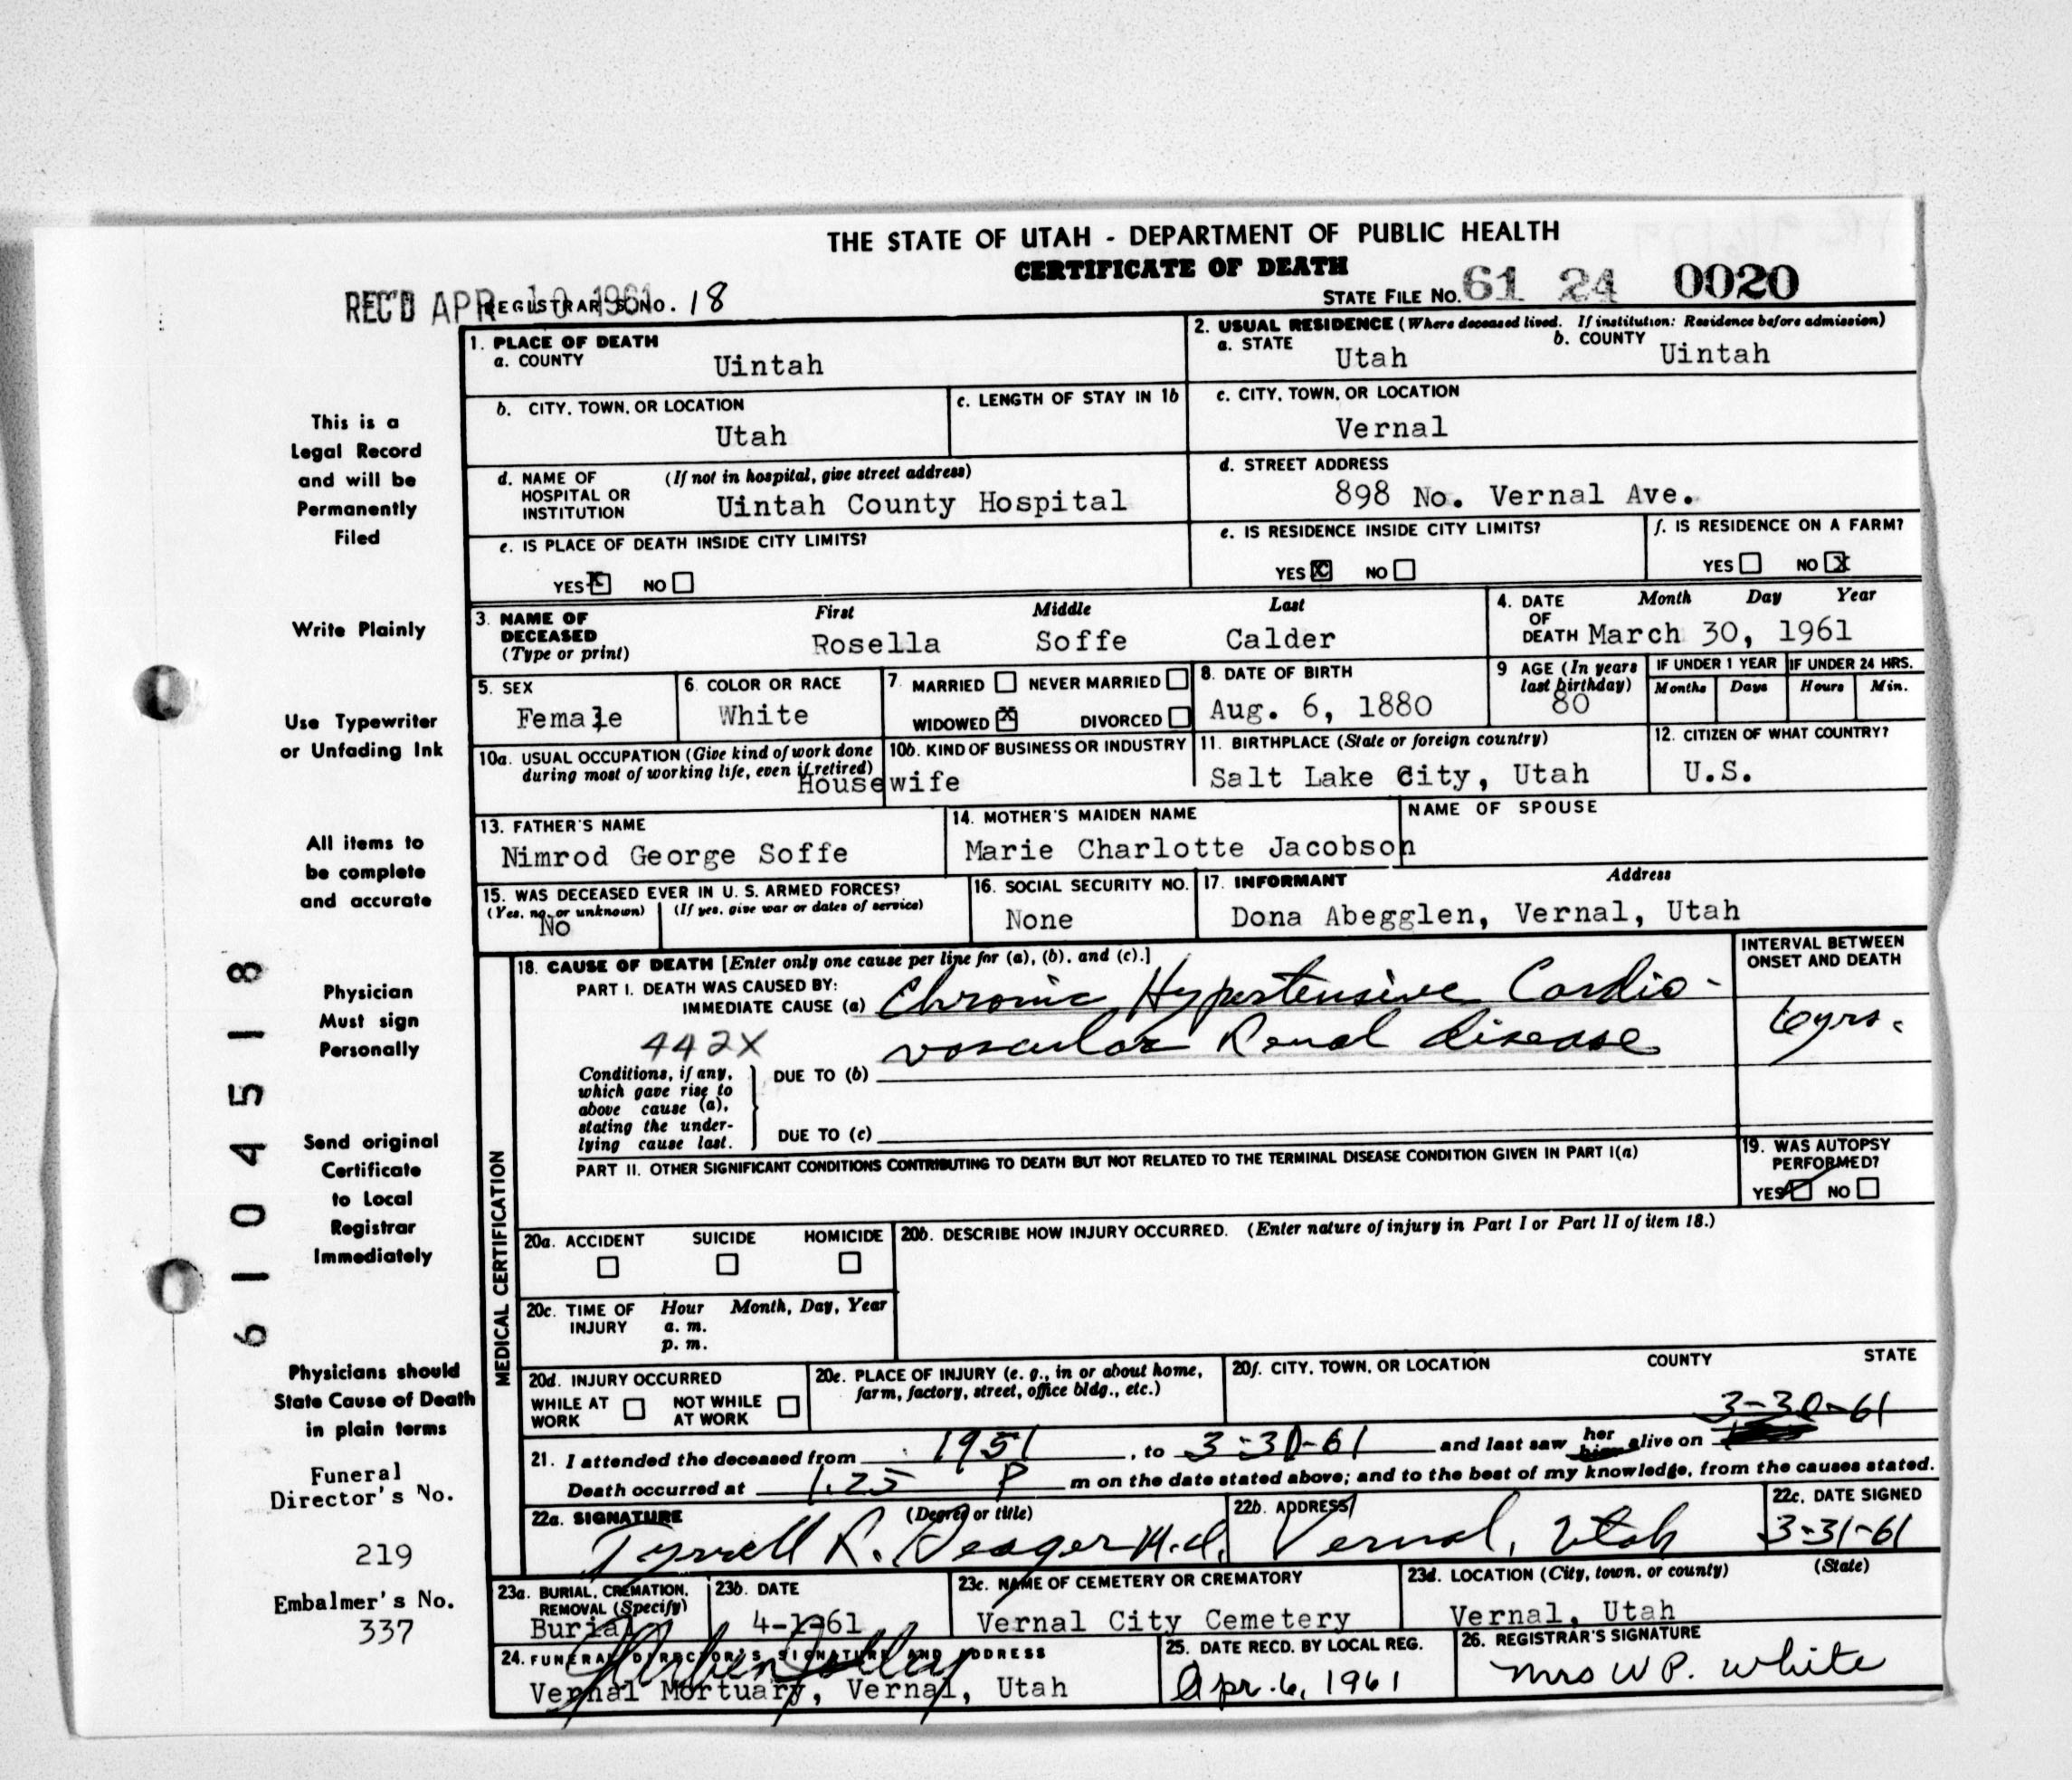 THE STATE OF UTAH - DEPARTMENT OF PUBLIC HEALTH
CERTIFICATE OF DEATH
REC'D APR 10 1961 REGISTRAR'S NO. 18
STATE FILE NO. 61 24 0020
1. PLACE OF DEATH
a. COUNTY Uintah
2. USUAL RESIDENCE (Where deceased lived. If institution: Residence before admission)
a. STATE Utah b. COUNTY Uintah
b. CITY, TOWN, OR LOCATION Utah
c. LENGTH OF STAY IN 1b
c. CITY, TOWN, OR LOCATION Vernal
d. NAME OF HOSPITAL OR INSTITUTION (If not in hospital, give street address) Uintah County Hospital
d. STREET ADDRESS 898 No. Vernal Ave.
e. IS PLACE OF DEATH INSIDE CITY LIMITS?
YES X NO
e. IS RESIDENCE INSIDE CITY LIMITS?
YES X NO
f. IS RESIDENCE ON A FARM?
YES NO X
3. NAME OF DECEASED (Type or print)
First Middle Last
Rosella Soffe Calder
4. DATE OF DEATH Month Day Year
March 30, 1961
5. SEX Female
6. COLOR OR RACE White
7. MARRIED NEVER MARRIED
WIDOWED X DIVORCED
8. DATE OF BIRTH Aug. 6, 1880
9 AGE (In years last birthday) 80
IF UNDER 1 YEAR Months Days
IF UNDER 24 HRS. Hours Min.
10a. USUAL OCCUPATION (Give kind of work done during most of working life, even if retired)
10b. KIND OF BUSINESS OR INDUSTRY
Housewife
11. BIRTHPLACE (State or foreign country)
Salt Lake City, Utah
12. CITIZEN OF WHAT COUNTRY?
U.S.
13. FATHER'S NAME
Nimrod George Soffe
14. MOTHER'S MAIDEN NAME
Marie Charlotte Jacobson
NAME OF SPOUSE
15. WAS DECEASED EVER IN U. S. ARMED FORCES?
(Yes, no, or unknown) (If yes, give war or dates of service)
No
16. SOCIAL SECURITY NO.
None
17. INFORMANT Address
Dona Abegglen, Vernal, Utah
MEDICAL CERTIFICATION
18. CAUSE OF DEATH [Enter only one cause per line for (a), (b), and (c).]
PART I. DEATH WAS CAUSED BY:
IMMEDIATE CAUSE (a) Chronic Hypertensive Cardio-
vascular Renal disease
442X
INTERVAL BETWEEN ONSET AND DEATH
6yrs.
Conditions, if any, which gave rise to above cause (a), stating the underlying cause last.
DUE TO (b)
DUE TO (c)
PART II. OTHER SIGNIFICANT CONDITIONS CONTRIBUTING TO DEATH BUT NOT RELATED TO THE TERMINAL DISEASE CONDITION GIVEN IN PART I(a)
19. WAS AUTOPSY PERFORMED?
YES NO
20a. ACCIDENT SUICIDE HOMICIDE
20b. DESCRIBE HOW INJURY OCCURRED. (Enter nature of injury in Part I or Part II of item 18.)
20c. TIME OF INJURY Hour Month, Day, Year
a. m.
p. m.
20d. INJURY OCCURRED
WHILE AT WORK NOT WHILE AT WORK
20e. PLACE OF INJURY (e. g., in or about home, farm, factory, street, office bldg., etc.)
20f. CITY, TOWN, OR LOCATION COUNTY STATE
3-30-61
21. I attended the deceased from 1951, to 3-30-61 and last saw her him alive on
Death occurred at 1.25 P m on the date stated above; and to the best of my knowledge, from the causes stated.
22a. SIGNATURE (Degree or title)
Tyrrell R. Seager M.d.
22b. ADDRESS
Vernal, Utah
22c. DATE SIGNED
3-31-61
23a. BURIAL, CREMATION, REMOVAL (Specify)
Burial
23b. DATE
4-1-61
23c. NAME OF CEMETERY OR CREMATORY
Vernal City Cemetery
23d. LOCATION (City, town, or county) (State)
Vernal, Utah
24. FUNERAL DIRECTOR'S SIGNATURE AND ADDRESS
Vernal Mortuary, Vernal, Utah
25. DATE RECD. BY LOCAL REG.
Apr. 6, 1961
26. REGISTRAR'S SIGNATURE
Mrs W P. White
This is a
Legal Record
and will be
Permanently
Filed
Write Plainly
Use Typewriter
or Unfading Ink
All items to
be complete
and accurate
Physician
Must sign
Personally
Send original
Certificate
to Local
Registrar
Immediately
Physicians should
State Cause of Death
in plain terms
Funeral
Director's No.
219
Embalmer's No.
337
61 04518